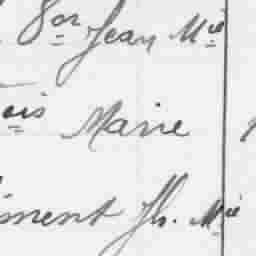 8or Jean Mie
ois Marie
ment Jh. Mie